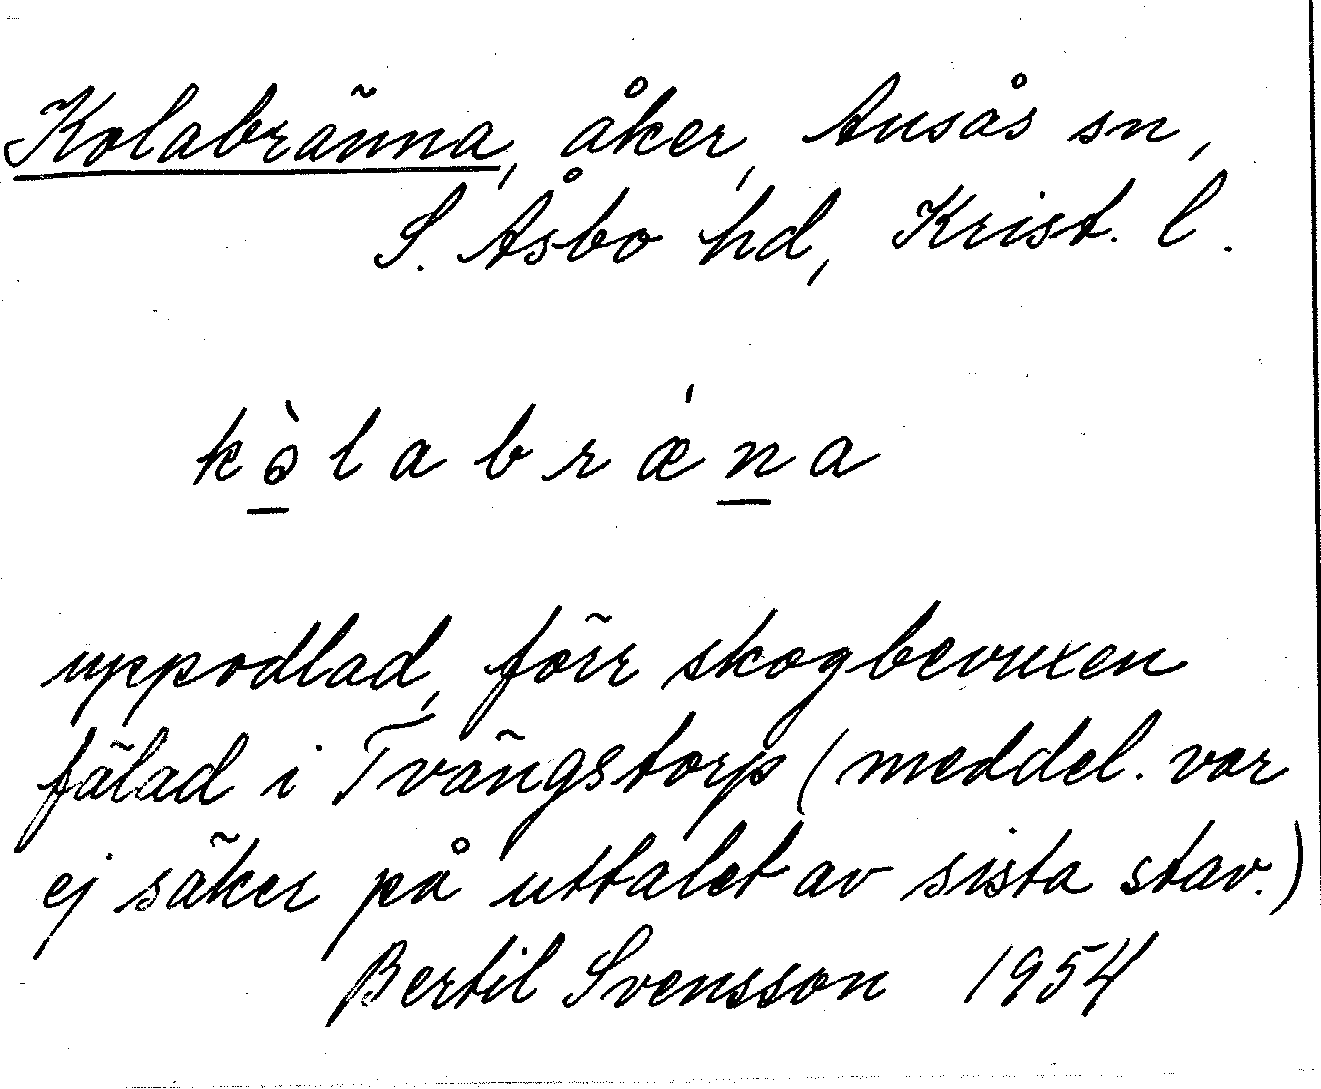 Kolabränna, åker, Ausås sn,
S. Åsbo hd, Krist. l.
kòlabrǽna
uppodlad, förr skogbevuxen
fälad i Tvängstorp (meddel. var
ej säker på uttalet av sista stav.)
Bertil Svensson 1954